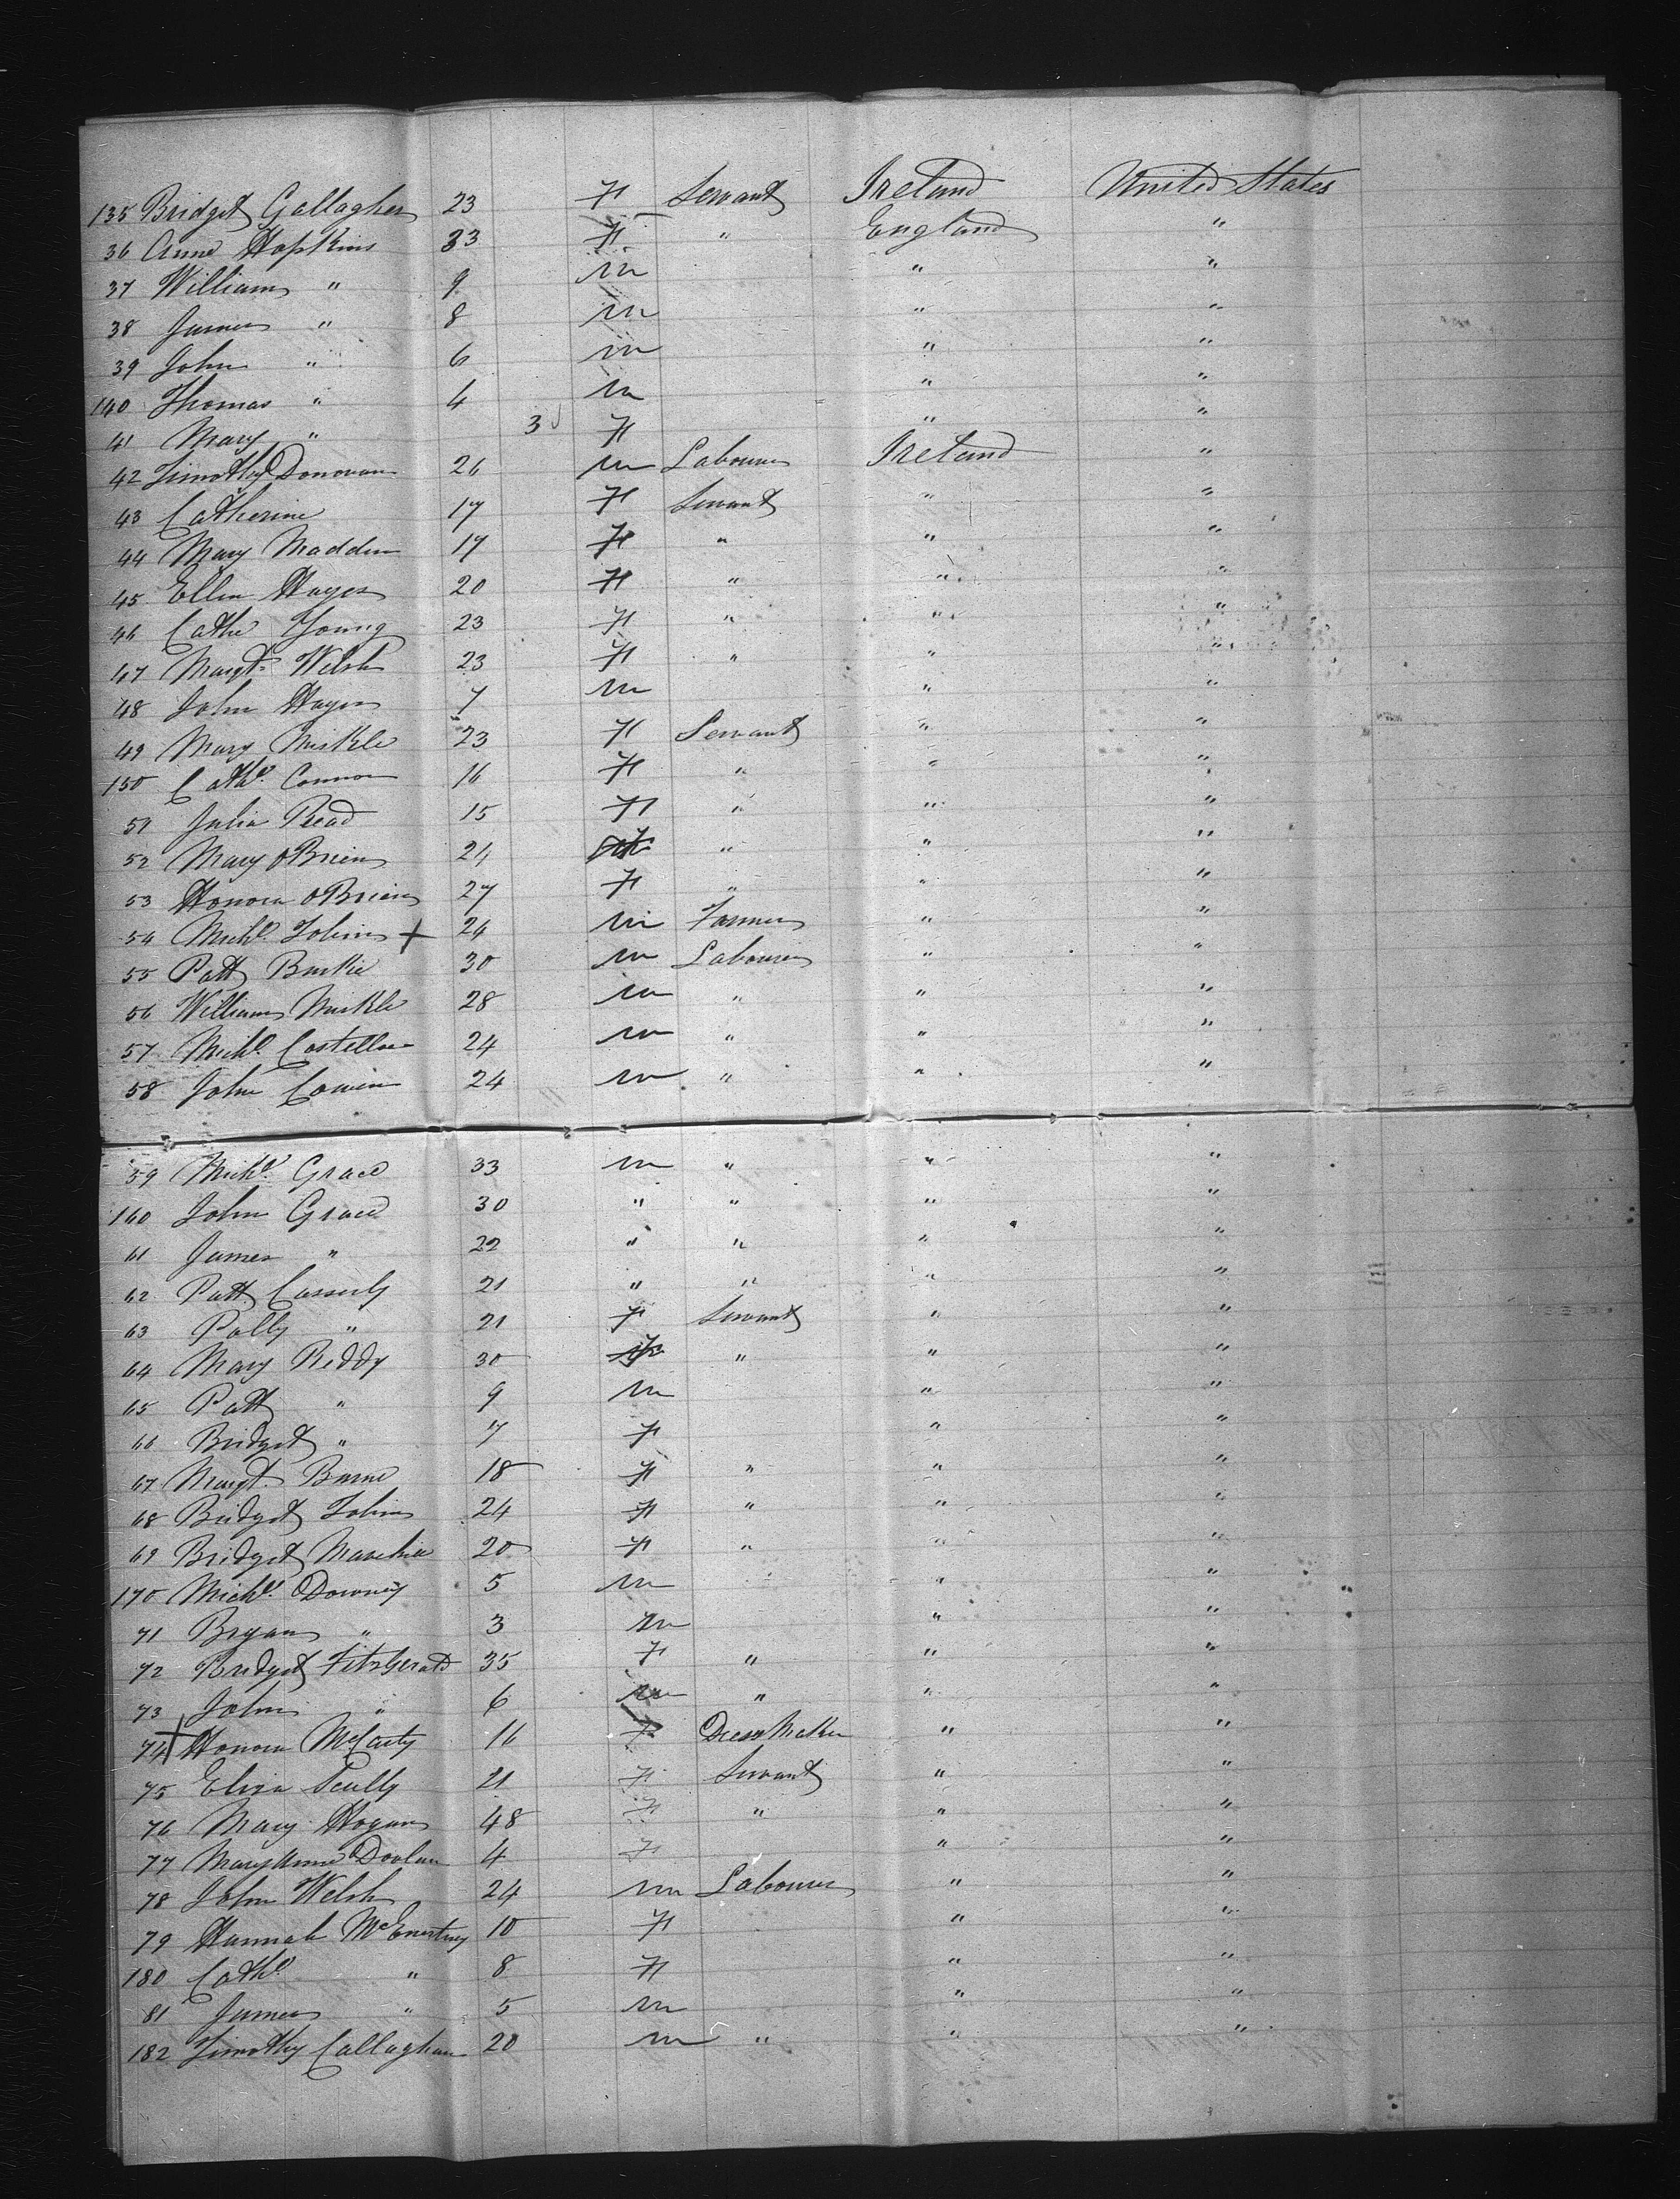 135 Bridget Gallagher 23 F Servant Ireland United States
36 Anne Hopkins 33 F " England "
37 William " 9 m " "
38 James " 8 m " "
39 John " 6 m " "
140 Thomas " 4 m " "
41 Mary " 3 F " "
42 Timothy Donovan 26 m Labourer Ireland "
43 Catherine 17 F Servant " "
44 Mary Madden 17 F " " "
45 Ellen Hayes 20 F " " "
46 Cathe Young 23 F " " "
47 Margt. Welsh 23 F " " "
48 John Hayes 7 m " "
49 Mary Miskle 23 F Servant " "
150 Cathe. Connor 16 F " " "
51 Julia Read 15 F " " "
52 Mary OBrien 24 F " " "
53 Honora OBrien 27 F " " "
54 Michl. Tobin + 24 m Farmer " "
55 Patt Burke 30 m Labourer " "
56 William Miskle 28 m " " "
57 Michl. Costelloe 24 m " " "
58 John Cowen 24 m " " "
59 Michl. Grace 33 m " " "
160 John Grace 30 " " " "
61 James " 22 " " " "
62 Patt Casserly 21 " " " "
63 Polly " 21 F Servant " "
64 Mary Reddy 30 F " " "
65 Patt " 9 m " "
66 Bridget " 7 F " "
67 Margt. Burne 18 F " " "
68 Bridget Tobin 24 F " " "
69 Bridget 20 F " " "
170 Michl. Downey 5 m " "
71 Bryan " 3 m " "
72 Bridget FitzGerald 35 F " " "
73 John " 6 m " " "
74 + Honora McCarty 16 F DressMaker " "
75 Eliza Scully 21 F Servant " "
76 Mary Hogan 48 F " " "
77 MaryAnne Doolan 4 F " "
78 John Welsh 24 m Labourer " "
79 Hannah McEnertney 10 F " "
180 Cathe. " 8 F " "
81 James " 5 m " "
182 Timothy Callaghan 20 m " " "